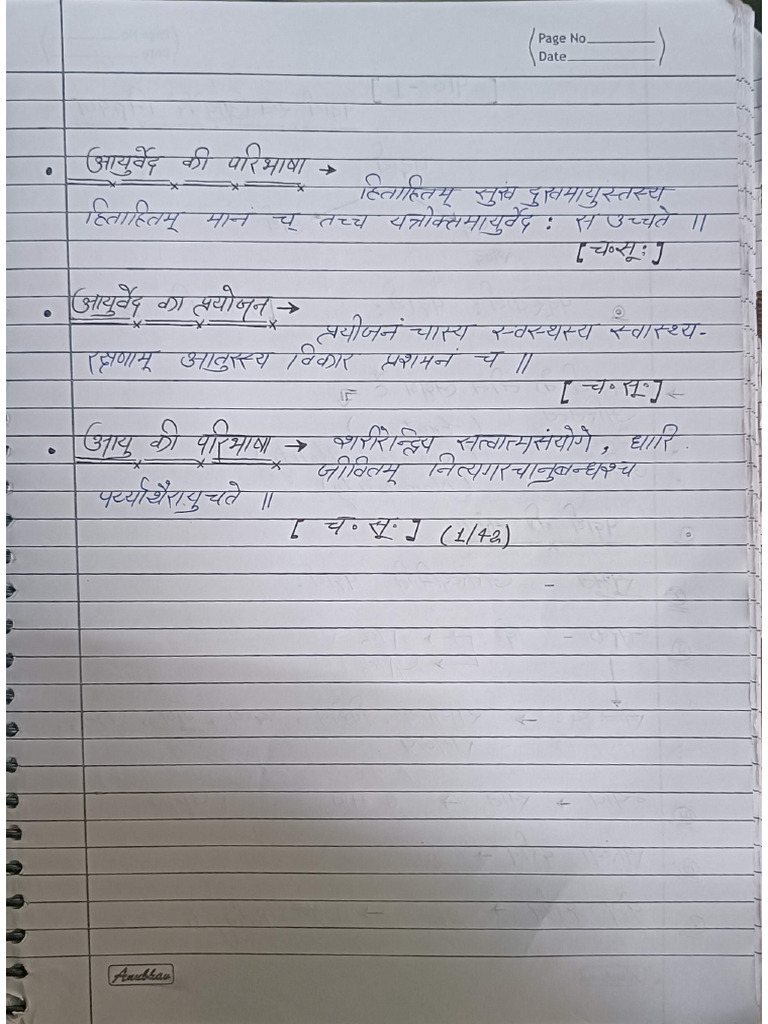 Page No
Date
• आयुर्वेद की परिभाषा →
हिताहितम् सुखं दुखमायुस्तस्य
हिताहितम् मानं च् तच्च यत्रोक्तमायुर्वेद : स उच्चते ॥
[च॰सू:]
• आयुर्वेद का प्रयोजन →
प्रयोजनं चास्य स्वस्थस्य स्वास्थ्य-
रक्षणाम् आतुरस्य विकार प्रशमनं च ॥
[च॰सू॰]
• आयु की परिभाषा → शरीरेन्द्रिय सत्वात्मसंयोगे, धारि
जीवितम् नित्यगश्चानुबन्धश्च
पर्य्यायैरायुचते ॥
[च॰ सू॰] (1/42)
Anubhav